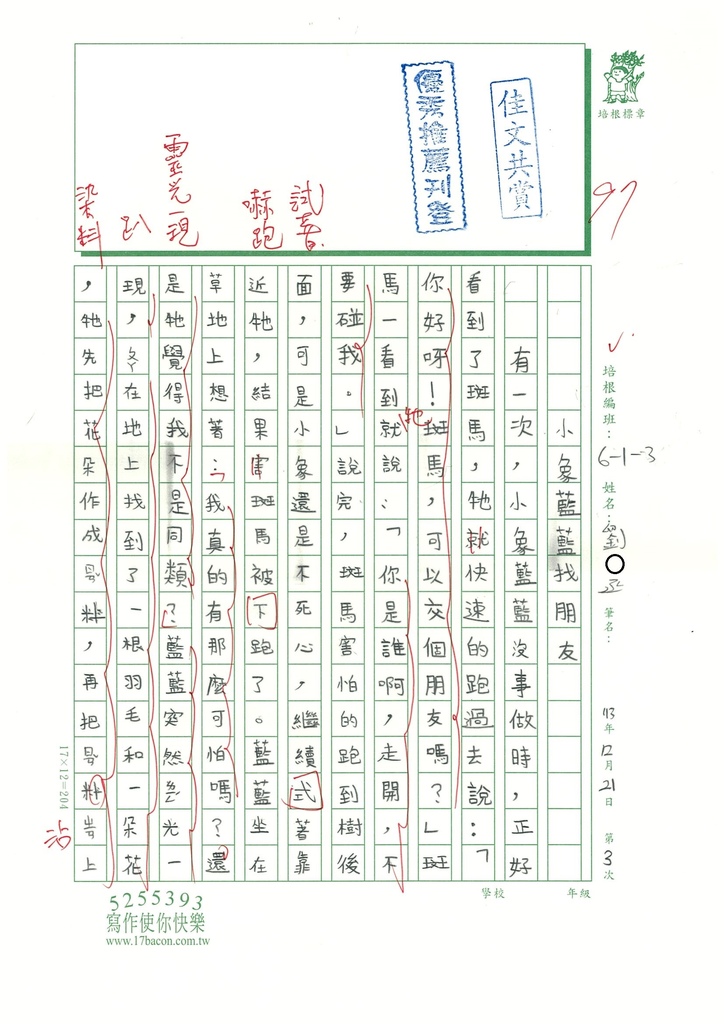 佳文共賞
優秀推薦刊登
97
培根標章
試著
嚇跑
靈光一現
趴
染料
培根編班：6-1-3 姓名：劉 筆名：
113年12月21日 第3次
年級
學校
小象藍藍找朋友
有一次，小象藍藍沒事做時，正好
看到了斑馬，牠就快速的跑過去說：「
你好呀！斑馬，可以交個朋友嗎？」斑
馬一看到就說：「你是誰啊，走開，不
牠
要碰我。」說完，斑馬害怕的跑到樹後
面，可是小象還是不死心，繼續式著靠
近牠，結果害斑馬被下跑了。藍藍坐在
草地上想著：「我真的有那麼可怕嗎？還
是牠覺得我不是同類？」藍藍突然ㄌㄧㄥˊ光一
現，ㄆㄚ在地上找到了一根羽毛和一朵花
，牠先把花朵作成ㄖㄢˇ料，再把ㄖㄢˇ料ㄓㄢ上
沾
17×12=204
5255393
寫作使你快樂
www.17bacon.com.tw